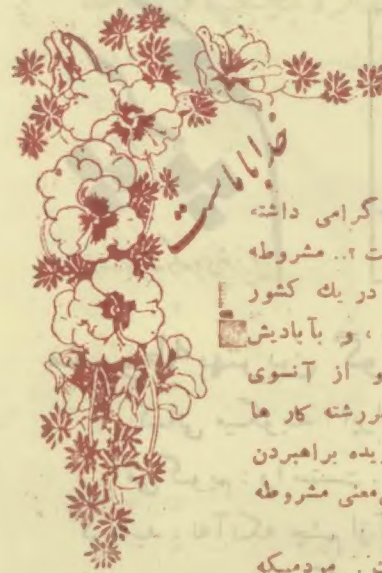 خدا با ماست
گرامی داشته
ت ؟.. مشروطه
در یك کشور
، و بآبادیش
و از آنسوی
سررشته کار ها
براهبردن
معنی مشروطه
مردمیکه